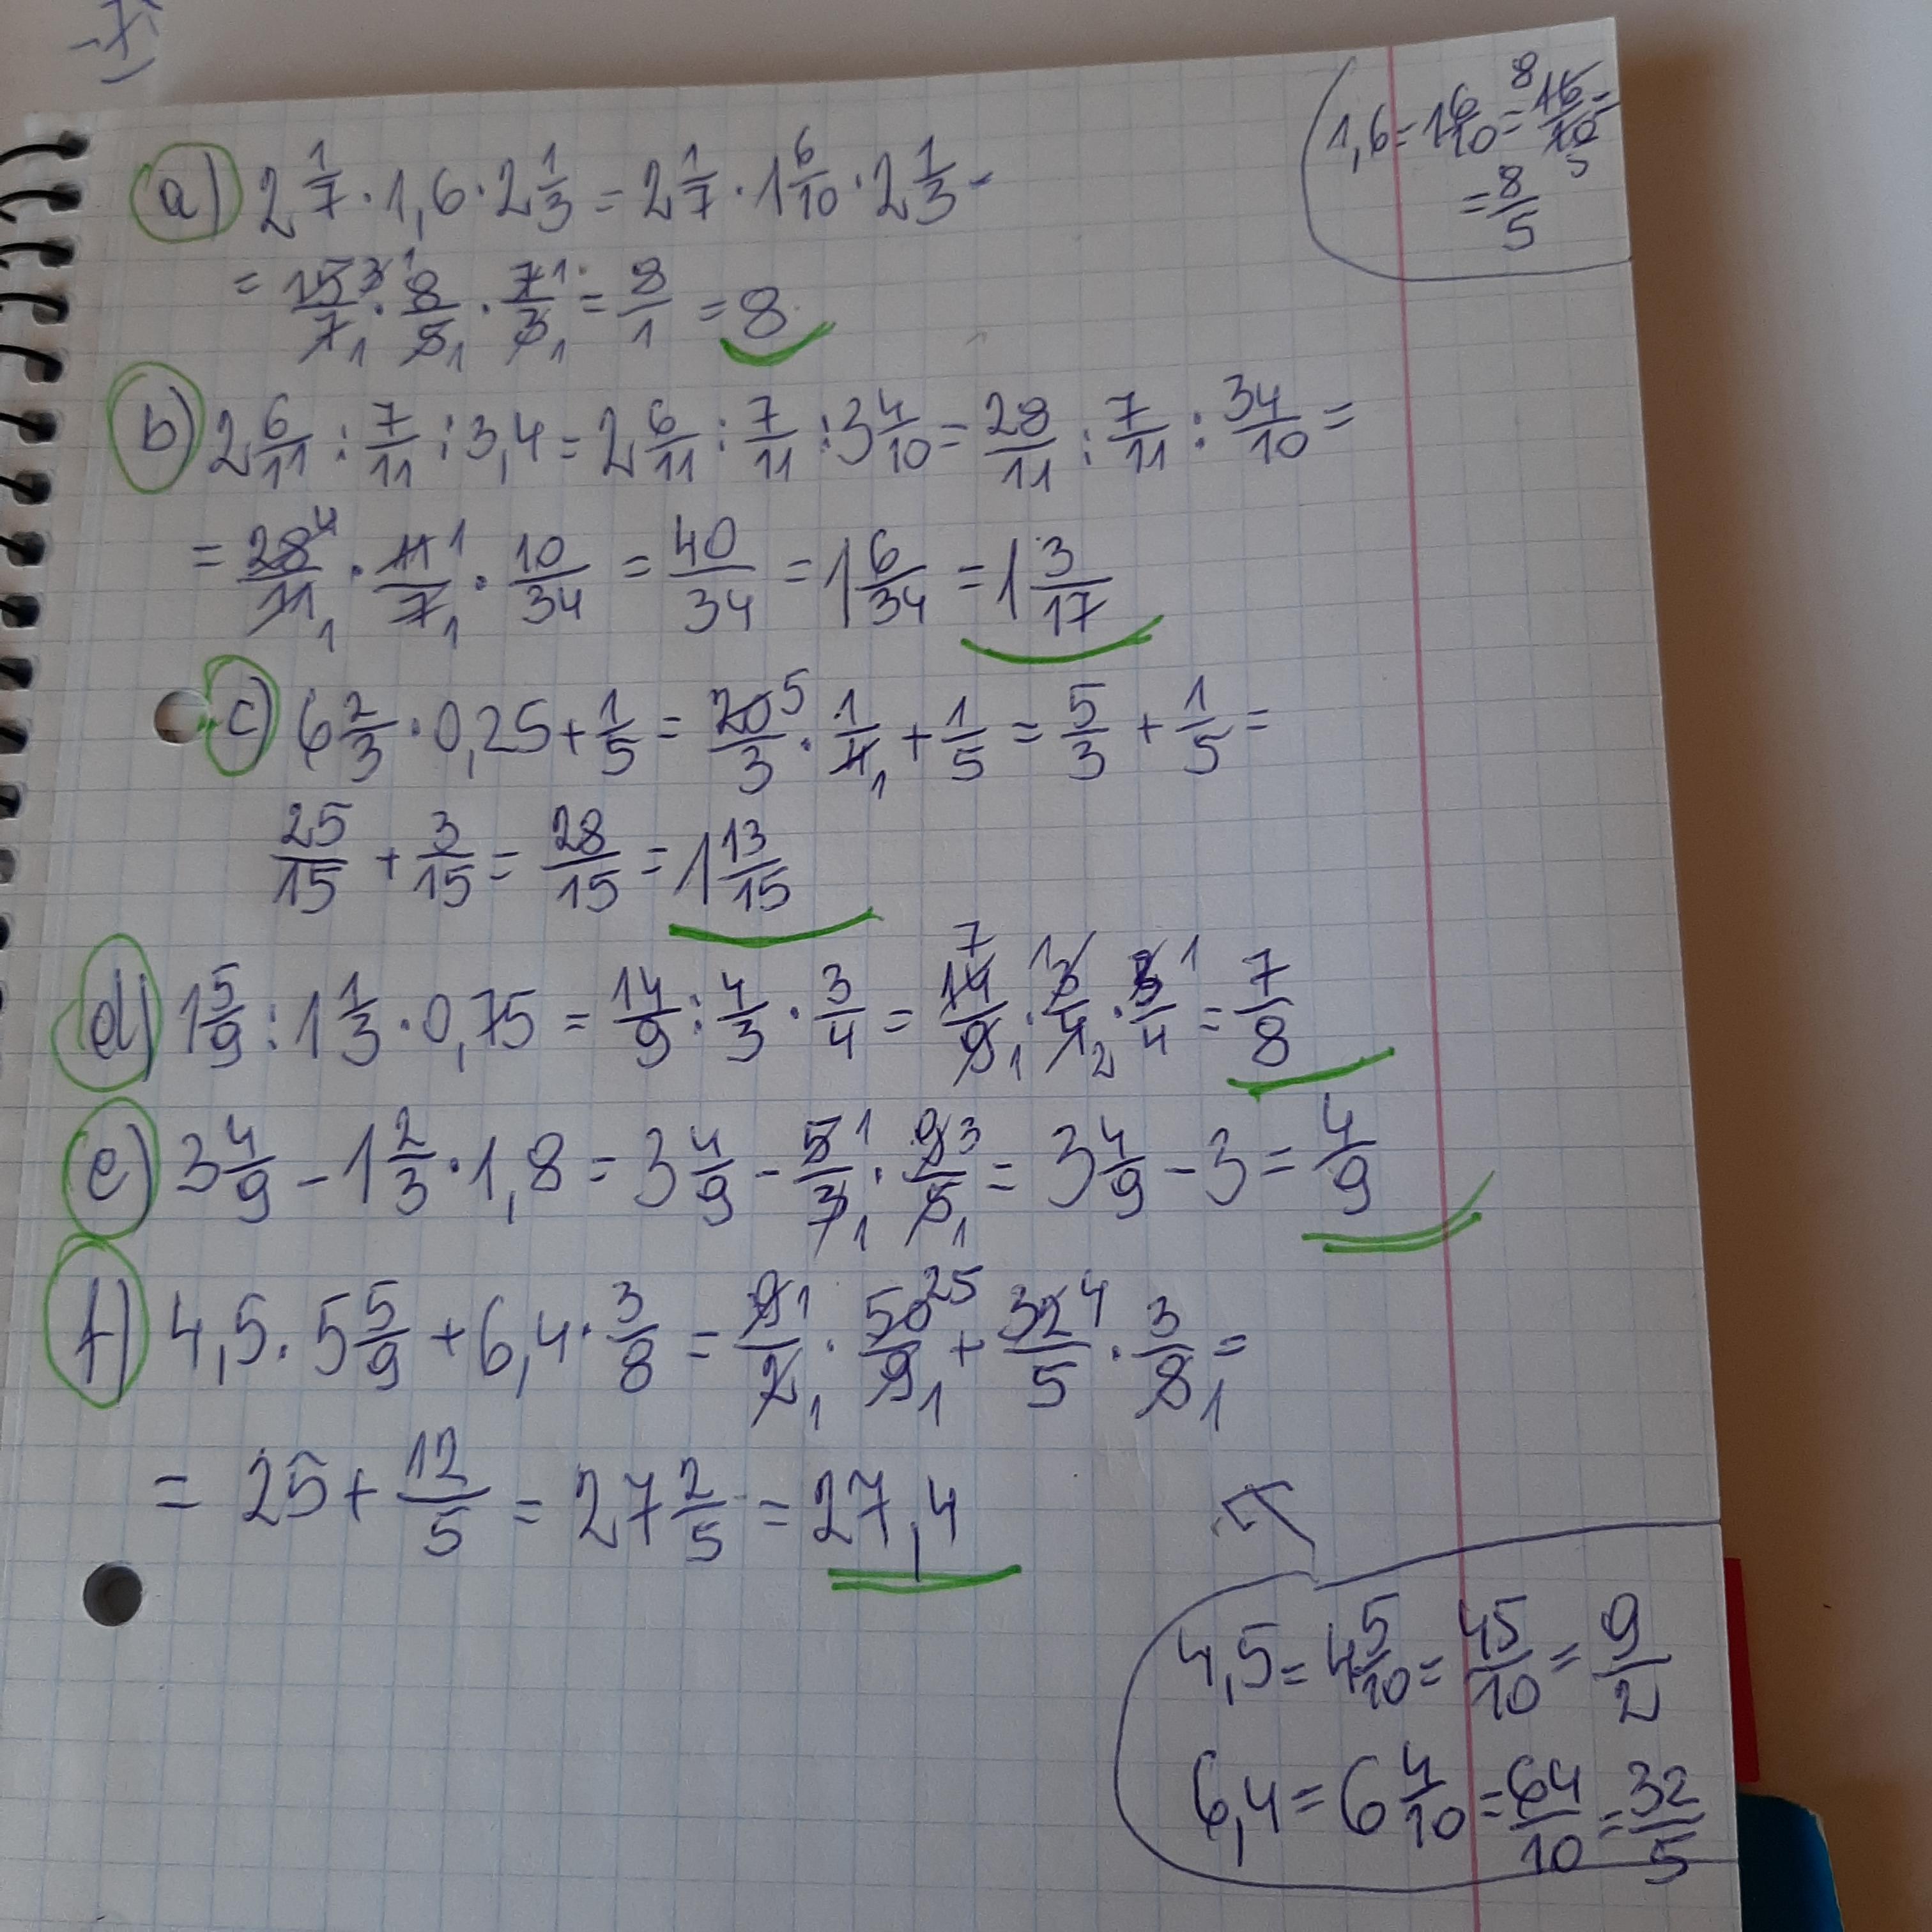 1,6 = 1 6/10 = 16/10 8 5 =
= 8/5
a) 2 1/7 · 1,6 · 2 1/3 = 2 1/7 · 1 6/10 · 2 1/3 =
= 15/7 3 1 · 8/5 1 1 · 7/3 1 1 = 8/1 = 8
b) 2 6/11 : 7/11 : 3,4 = 2 6/11 : 7/11 : 3 4/10 = 28/11 : 7/11 : 34/10 =
= 28/11 4 1 · 11/7 1 1 · 10/34 = 40/34 = 1 6/34 = 1 3/17
c) 6 2/3 · 0,25 + 1/5 = 20/3 5 · 1/4 1 + 1/5 = 5/3 + 1/5 =
25/15 + 3/15 = 28/15 = 1 13/15
d) 1 5/9 : 1 1/3 · 0,75 = 14/9 : 4/3 · 3/4 = 14/9 7 1 · 3/4 1 2 · 3/4 1 = 7/8
e) 3 4/9 - 1 2/3 · 1,8 = 3 4/9 - 5/3 1 1 · 9/5 3 1 = 3 4/9 - 3 = 4/9
f) 4,5 · 5 5/9 + 6,4 · 3/8 = 9/2 1 1 · 50/9 25 1 + 32/5 4 · 3/8 1 =
= 25 + 12/5 = 27 2/5 = 27,4
4,5 = 4 5/10 = 45/10 = 9/2
6,4 = 6 4/10 = 64/10 = 32/5